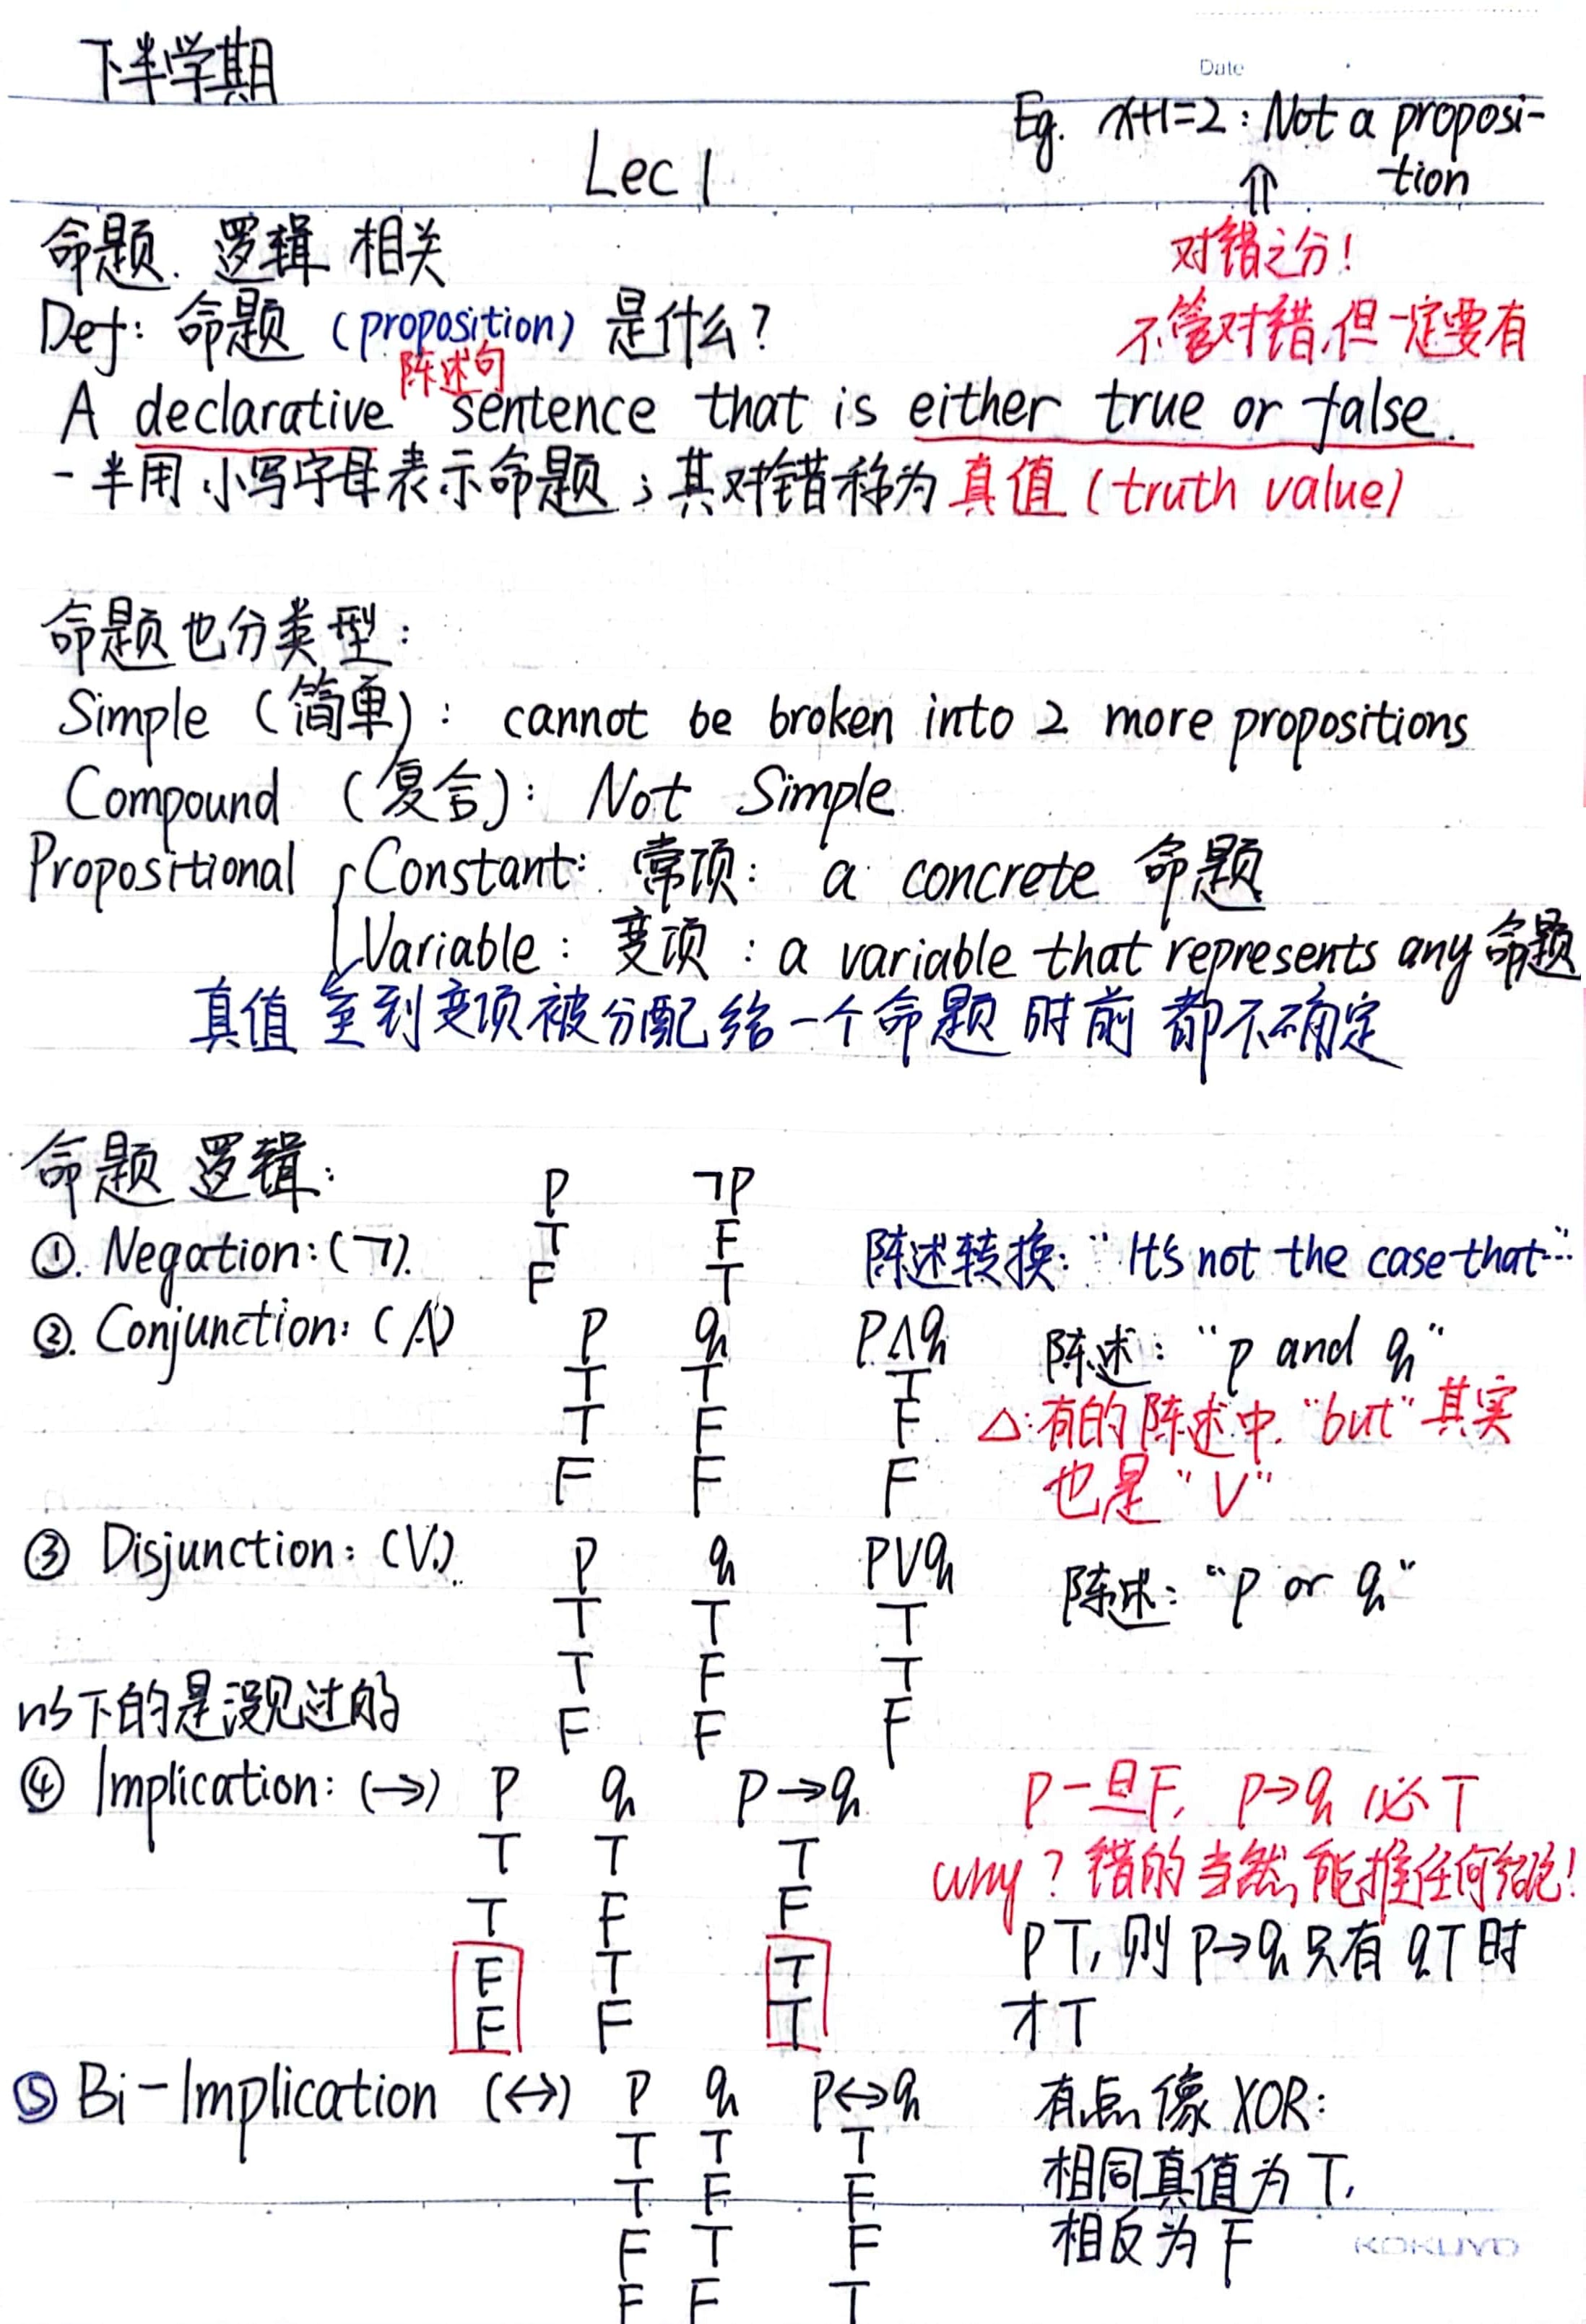 下半学期
Date
Eg. x+1=2 : Not a proposi-
tion
Lec 1
⇑
命题. 逻辑 相关
对错之分!
Def: 命题 (proposition) 是什么?
不管对错,但一定要有
陈述句
A declarative sentence that is either true or false.
一半用小写字母表示命题 ; 其对错称为 真值 (truth value)
命题也分类型:
Simple (简单) : cannot be broken into 2 more propositions
Compound (复合) : Not Simple
Propositional { Constant: 常项: a concrete 命题
Variable : 变项 : a variable that represents any 命题
真值 至到变项被分配给一个命题 时前 都不确定
命题 逻辑:
P ¬P
①. Negation: (¬). T F 陈述转换: "It's not the case that…"
F T
②. Conjunction: (∧) P q P∧q 陈述: "p and q"
T T T
T F F △:有的陈述中. "but" 其实
F F F 也是 "V"
③ Disjunction: (V). P q PVq 陈述: "p or q"
T T T
T F T
以下的是没见过的 F F F
④ Implication: (→) P q P→q P一旦F, P→q 必T
T T T why? 错的当然能推任何结论!
T F F PT, 则 P→q 只有 qT 时
F T T
F F T 才T
⑤ Bi-Implication (↔) P q P↔q 有点像 XOR:
T T T 相同真值为 T,
T F F
F T F 相反为 F
F F T
KOKUYO